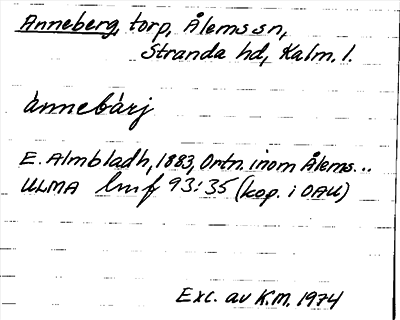 Anneberg, torp, Ålems sn,
Stranda hd, Kalm. l.
ànnebàrj
E. Almbladh, 1883, Ortn. inom Ålems...
ULMA lmf 93:35 (kop. i OAU)
Exc. av K.M. 1974